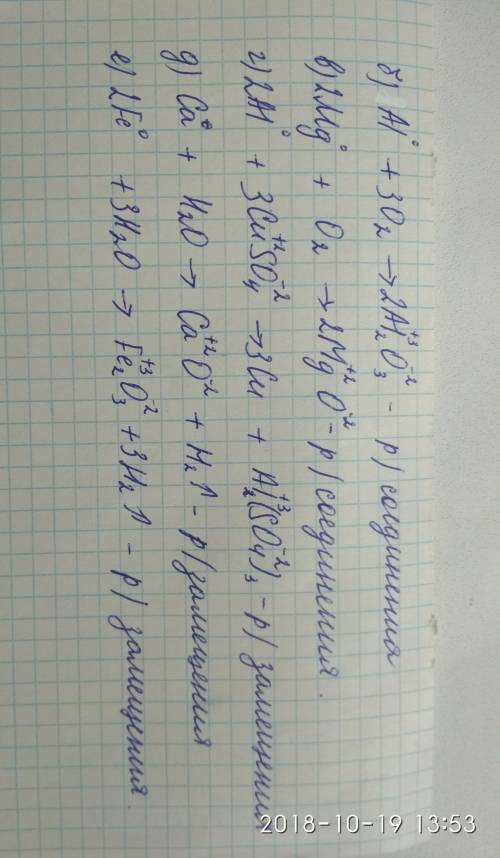 б) Al⁰ + 3O₂ → 2Al₂⁺³O₃⁻² - р/соединения
в) 2Mg⁰ + O₂ → 2Mg⁺²O⁻² - р/соединения.
г) 2Al⁰ + 3Cu⁺²SO₄⁻² → 3Cu + Al₂⁺³(SO₄)₃⁻² - р/замещения
д) Ca⁰ + H₂O → Ca⁺²O⁻² + H₂↑ - р/замещения
е) 2Fe⁰ + 3H₂O → Fe₂⁺³O₃⁻² + 3H₂↑ - р/замещения.
2018-10-19 13:53